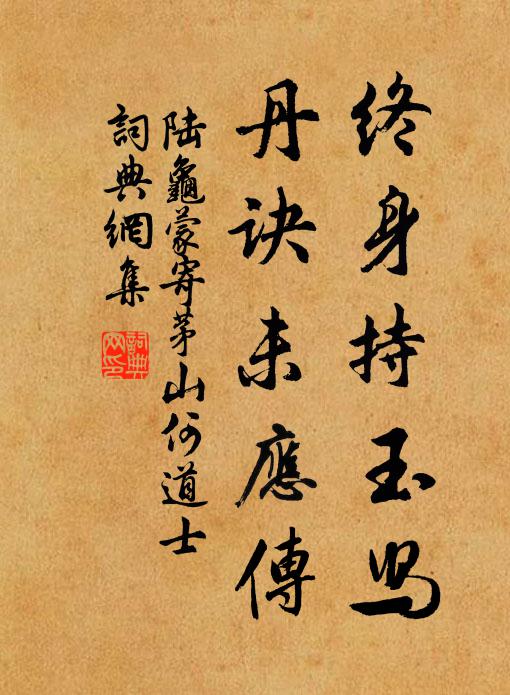 終身持玉舄
丹诀未應傳
陆龜蒙寄茅山何道士
詞典網集
詞典
网印